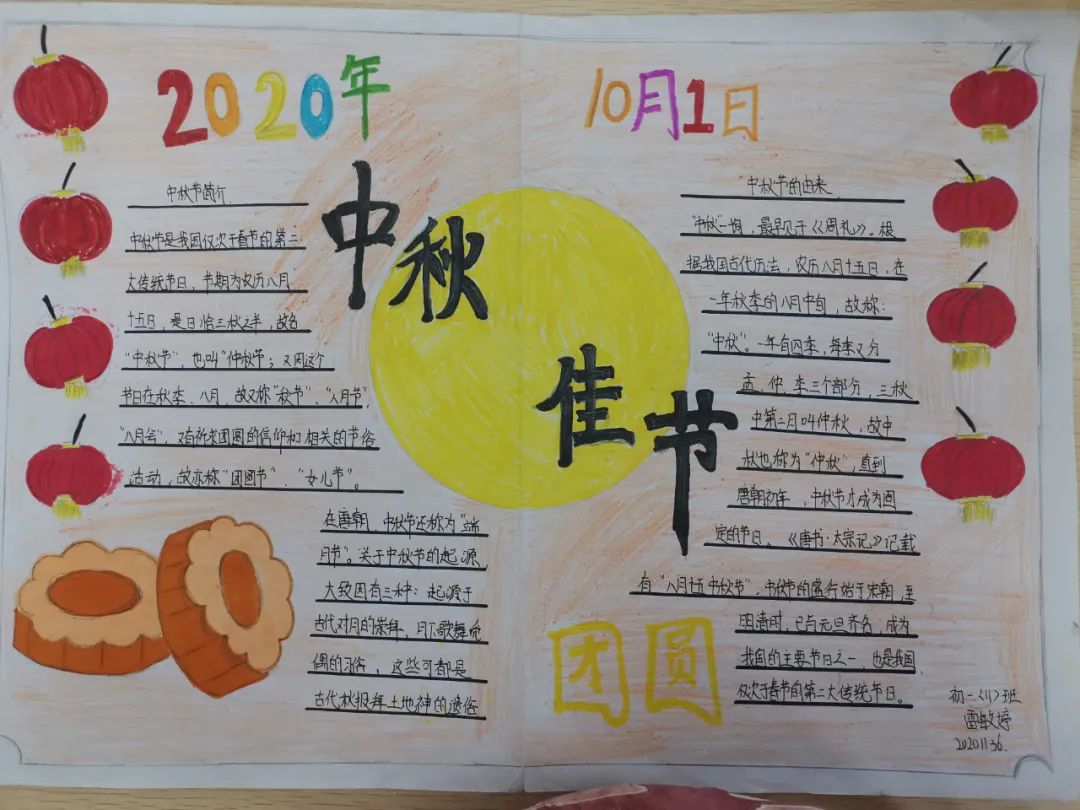 2020年
10月1日
中秋佳节
中秋节简介
中秋节是我国仅次于春节的第二
大传统节日，节期为农历八月
十五日，是日恰三秋之半，故名
“中秋节”，也叫“仲秋节；又因这个
节日在秋季、八月，故又称“秋节”、“八月节”、
“八月会”，又有祈求团圆的信仰和相关的节俗
活动，故亦称“团圆节”、“女儿节”。
在唐朝，中秋节还称为“端
月节”。关于中秋节的起源，
大致因有三种：起源于
古代对月的崇拜、月下歌舞觅
偶的习俗，这些可都是
古代秋报拜土地神的遗俗
中秋节的由来
“中秋”一词，最早见于《周礼》。根
据我国古代历法，农历八月十五日，在
一年秋季的八月中旬，故称：
“中秋”。一年有四季，每季又分
孟、仲、季三个部分，三秋
中第二月叫仲秋，故中
秋也称为“仲秋”，直到
唐朝初年，中秋节才成为固
定的节日。《唐书·太宗记》记载
有“八月十五中秋节”，中秋节的盛行始于宋朝，至
明清时，已与元旦齐名，成为
我国的主要节日之一，也是我国
仅次于春节的第二大传统节日。
团圆
初一<11>班
雷敏婷